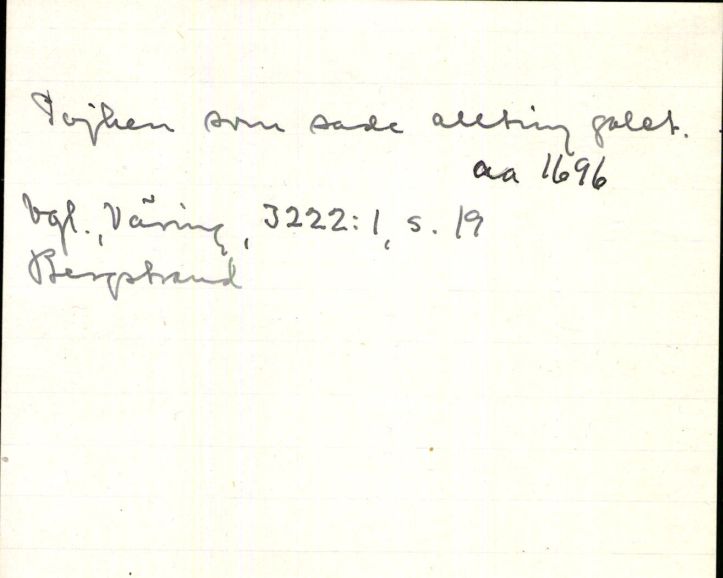 Pojken som sade allting galet.
aa 1696
Vgl., Väring, 3222:1, s. 19
Bergstrand